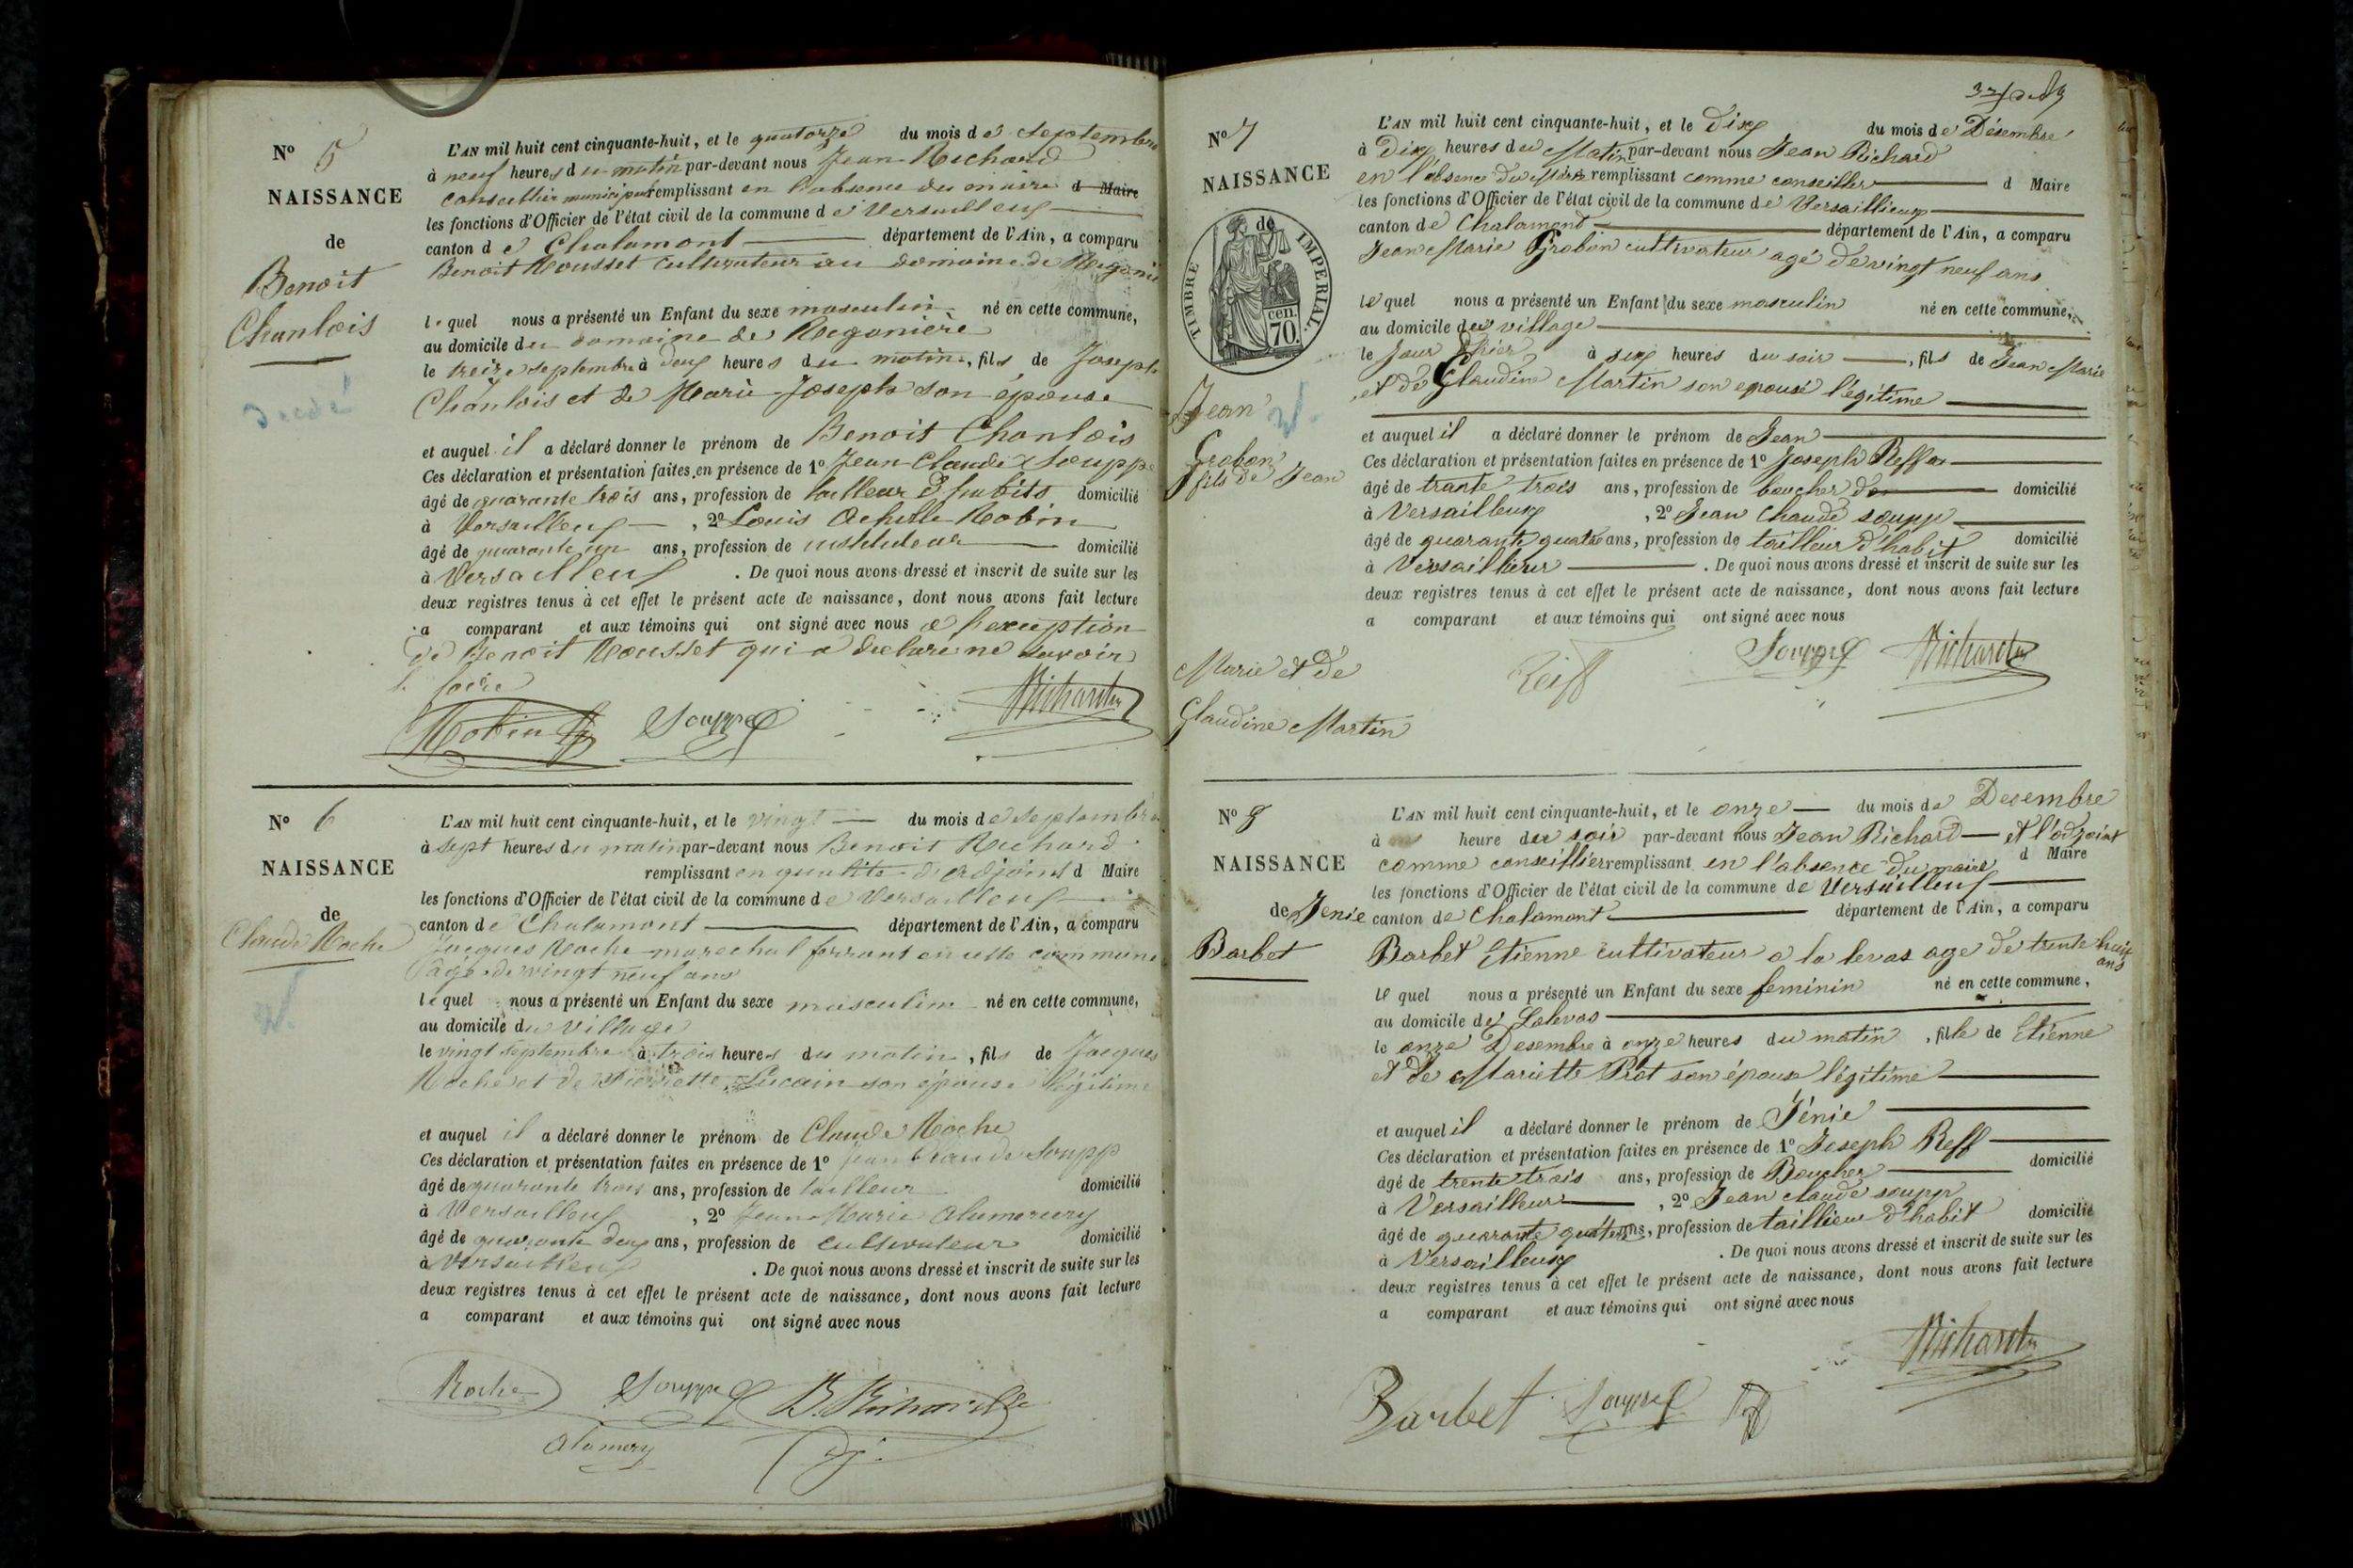 N° 5
NAISSANCE
de
Benoit
Chanlois
décédé
L'AN mil huit cent cinquante-huit, et le quatorze du mois de Septembre
à neuf heures du matin par-devant nous Jean Richard
conseiller municipal remplissant en l'absence du maire d Maire
les fonctions d'Officier de l'état civil de la commune de Versailleux
canton de Chalamont département de l'Ain, a comparu
Benoit Rousset cultivateur au domaine de
lequel nous a présenté un Enfant du sexe masculin né en cette commune,
au domicile du domaine de Regonière
le treize septembre à deux heures du matin, fils de Joseph
Chanlois et de Marie Joseph son épouse
et auquel il a déclaré donner le prénom de Benoit Chanlois
Ces déclaration et présentation faites en présence de 1° Jean Claude Soupp
âgé de quarante trois ans, profession de tailleur d'habits domicilié
à Versailleux, 2° Louis Achille Robin
âgé de quarante un ans, profession de instituteur domicilié
à Versailleux. De quoi nous avons dressé et inscrit de suite sur les
deux registres tenus à cet effet le présent acte de naissance, dont nous avons fait lecture
a comparant et aux témoins qui ont signé avec nous à l'exception
de Benoit Rousset qui a déclaré ne savoir
le faire
Robin Soupp Richard
N° 6
NAISSANCE
de
Claude Roche
L'AN mil huit cent cinquante-huit, et le vingt du mois de Septembre
à sept heures du matin par-devant nous Benoit Richard
remplissant en qualité d'adjoint d Maire
les fonctions d'Officier de l'état civil de la commune de Versailleux
canton de Chalamont département de l'Ain, a comparu
Jacques Roche marechal ferrant en cette commune
âgé de vingt neuf ans
lequel nous a présenté un Enfant du sexe masculin né en cette commune,
au domicile du village
le vingt septembre à trois heures du matin, fils de Jacques
Roche et de Pierrette Lucain son épouse légitime
et auquel il a déclaré donner le prénom de Claude Roche
Ces déclaration et présentation faites en présence de 1° Jean Claude Soupp
âgé de quarante trois ans, profession de tailleur domicilié
à Versailleux, 2° Jean Marie Alumerery
âgé de quarante deux ans, profession de cultivateur domicilié
à Versailleux. De quoi nous avons dressé et inscrit de suite sur les
deux registres tenus à cet effet le présent acte de naissance, dont nous avons fait lecture
a comparant et aux témoins qui ont signé avec nous
Roche Soupp B. Richard
Alumery adj.
N° 7
NAISSANCE
de
TIMBRE IMPERIAL
70 cen.
Jean
Grobon
fils de Jean
Marie et de
Glaudine Martin
L'AN mil huit cent cinquante-huit, et le Dix du mois de Désembre
à Dix heures du Matin par-devant nous Jean Richard
en l'absence du Maire remplissant comme conseiller d Maire
les fonctions d'Officier de l'état civil de la commune de Versaillieux
canton de Chalamont département de l'Ain, a comparu
Jean Marie Grobon cultivateur agé de vingt neuf ans
lequel nous a présenté un Enfant du sexe masculin né en cette commune,
au domicile du village
le Jour d'hier à six heures du soir, fils de Jean Marie
et de Glaudine Martin son epouse légitime
et auquel il a déclaré donner le prénom de Jean
Ces déclaration et présentation faites en présence de 1° Joseph Reff
âgé de trante trois ans, profession de boucher domicilié
à Versailleux, 2° Jean Chaude soupp
âgé de quarante quatre ans, profession de tailleur d'habit domicilié
à Versailleux. De quoi nous avons dressé et inscrit de suite sur les
deux registres tenus à cet effet le présent acte de naissance, dont nous avons fait lecture
a comparant et aux témoins qui ont signé avec nous
Reiff Soupp Richard
N° 8
NAISSANCE
de Jenie
Barbet
L'AN mil huit cent cinquante-huit, et le onze du mois de Desembre
à heure du soir par-devant nous Jean Richard et l'adjoint
comme conseillier remplissant en l'absence du maire d Maire
les fonctions d'Officier de l'état civil de la commune de Versailleux
canton de Chalamont département de l'Ain, a comparu
Barbet Etienne cultivateur a la levas age de trente huit
ans
lequel nous a présenté un Enfant du sexe feminin né en cette commune,
au domicile de Lalevas
le onze Desembre à onze heures du matin, fille de Etienne
et de Mariette Prat son épouse légitime
et auquel il a déclaré donner le prénom de Jénie
Ces déclaration et présentation faites en présence de 1° Joseph Reff
âgé de trente trois ans, profession de Boucher domicilié
à Versailleux, 2° Jean claude soupp
âgé de quarante quatre ans, profession de taillieur d'habit domicilié
à Versailleux. De quoi nous avons dressé et inscrit de suite sur les
deux registres tenus à cet effet le présent acte de naissance, dont nous avons fait lecture
a comparant et aux témoins qui ont signé avec nous
Richard
Barbet Soupp